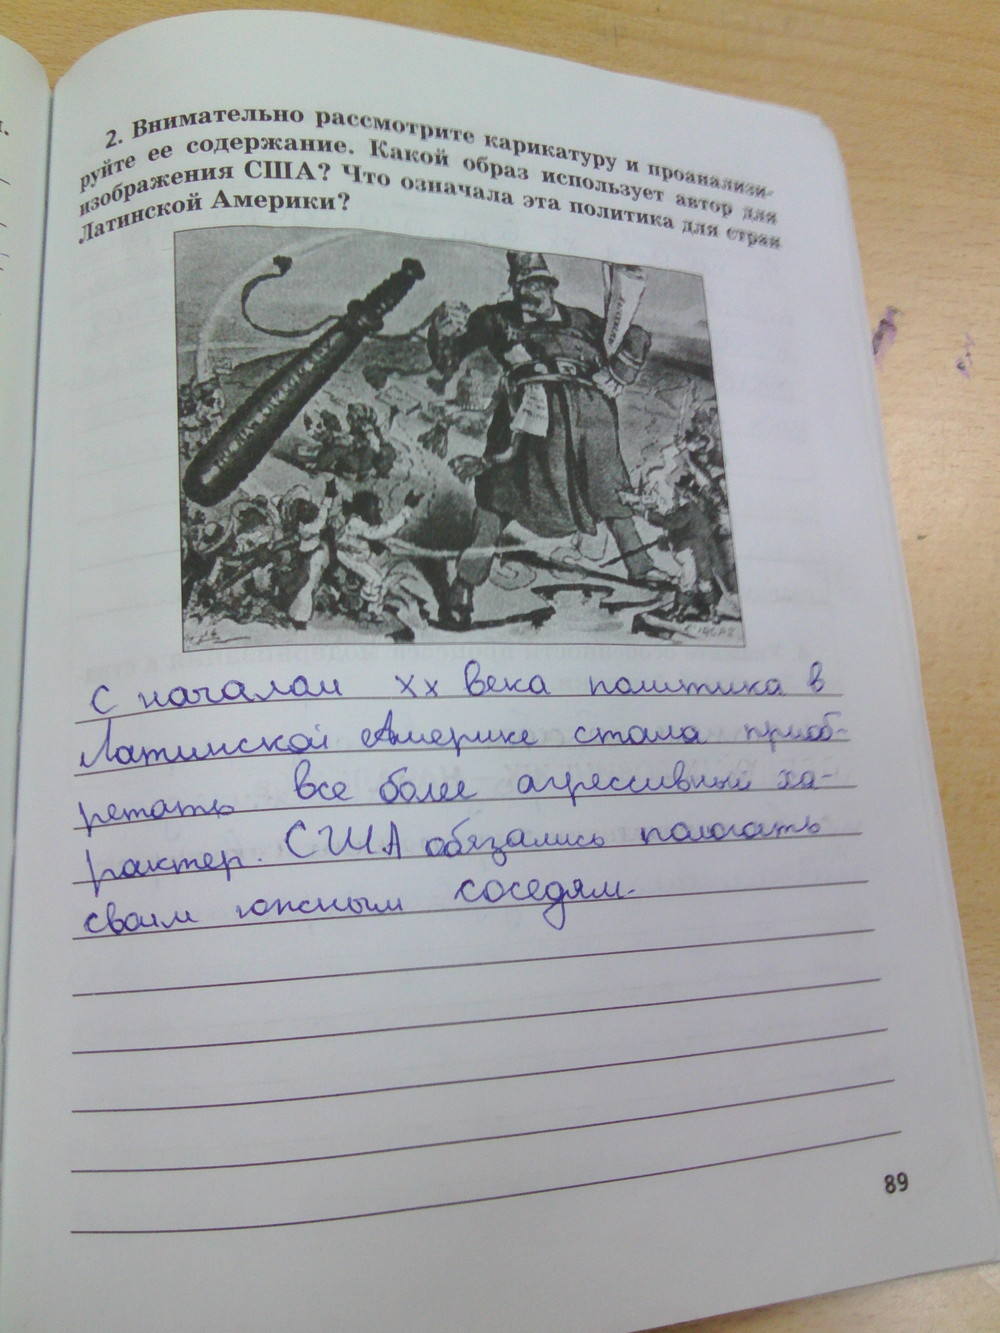 2. Внимательно рассмотрите карикатуру и проанализи-
руйте ее содержание. Какой образ использует автор для
изображения США? Что означала эта политика для стран
Латинской Америки?
С началом XX века политика в
Латинской Америке стала приоб-
ретать все более агрессивный ха-
рактер. США обязались помогать
своим южным соседям.
89